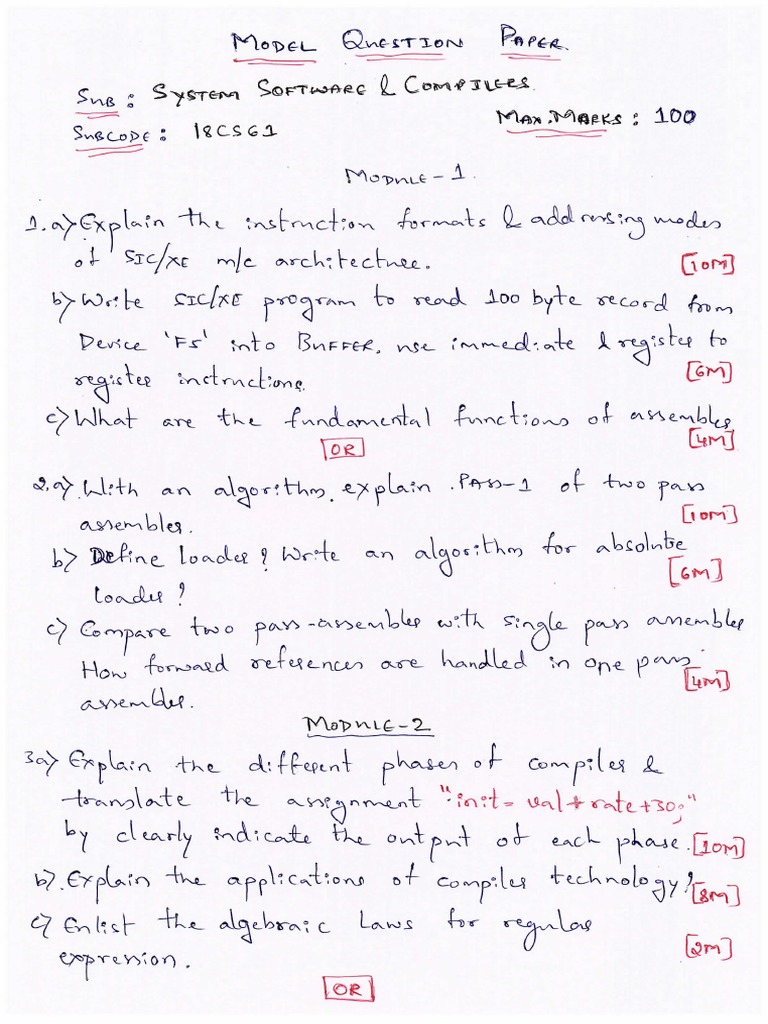 MODEL QUESTION PAPER.
SUB: SYSTEM SOFTWARE & COMPILERS.
SUBCODE: 18CS61 MAX.MARKS: 100
MODULE-1.
1.a) Explain the instruction formats & addressing modes
of SIC/XE m/c architecture. [10M]
b) Write SIC/XE program to read 100 byte record from
Device 'F5' into BUFFER, use immediate & register to
register instructions. [6M]
c) What are the fundamental functions of assembler
[4M]
OR
2.a). With an algorithm, explain .PASS-1 of two pass
assembler. [10M]
b) Define loader? Write an algorithm for absolute
loader? [6M]
c) Compare two pass-assembler with single pass assembler
How forward references are handled in one pass.
assembler. [4M]
MODULE-2
3a) Explain the different phases of compiler &
translate the assignment "init= val * rate+30;"
by clearly indicate the output of each phase. [10M]
b). Explain the applications of compiler technology? [8M]
c) Enlist the algebraic Laws for regular
expression. [2M]
OR